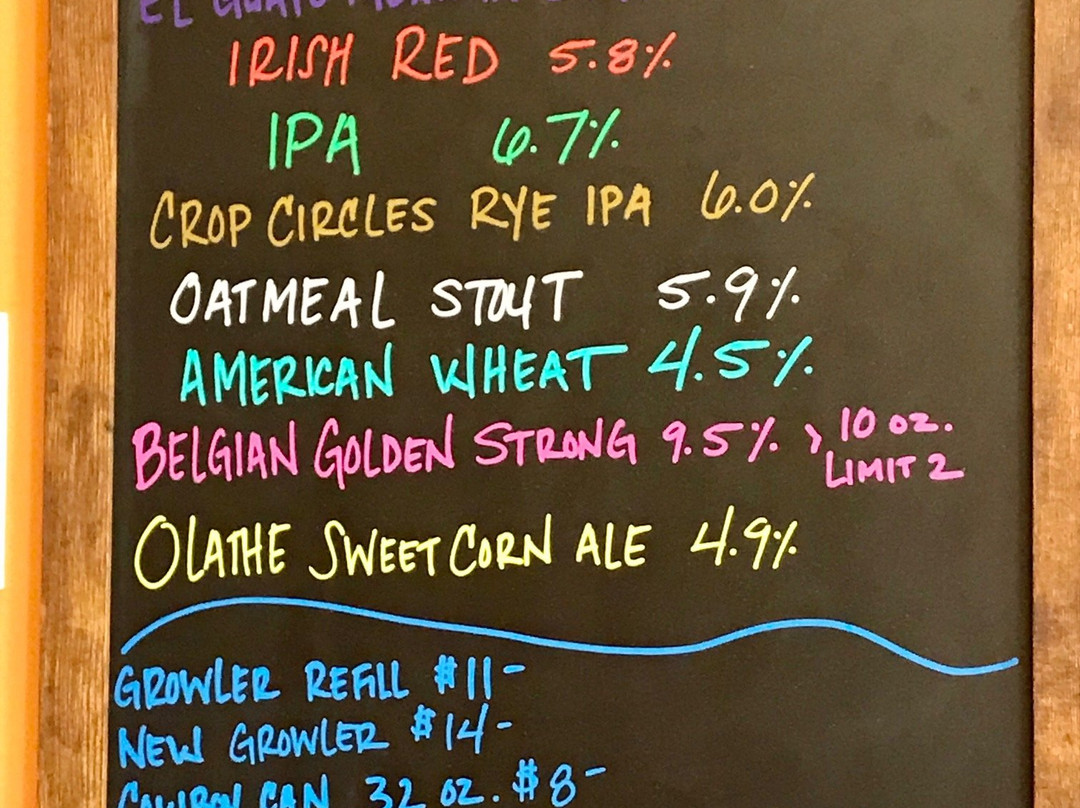 EL
IRISH RED 5.8%
IPA 6.7%
CROP CIRCLES RYE IPA 6.0%
OATMEAL STOUT 5.9%
AMERICAN WHEAT 4.5%
BELGIAN GOLDEN STRONG 9.5% > 10 oz.
LIMIT 2
OLATHE SWEET CORN ALE 4.9%
GROWLER REFILL $11-
NEW GROWLER $14-
CAN 32 OZ. $8-